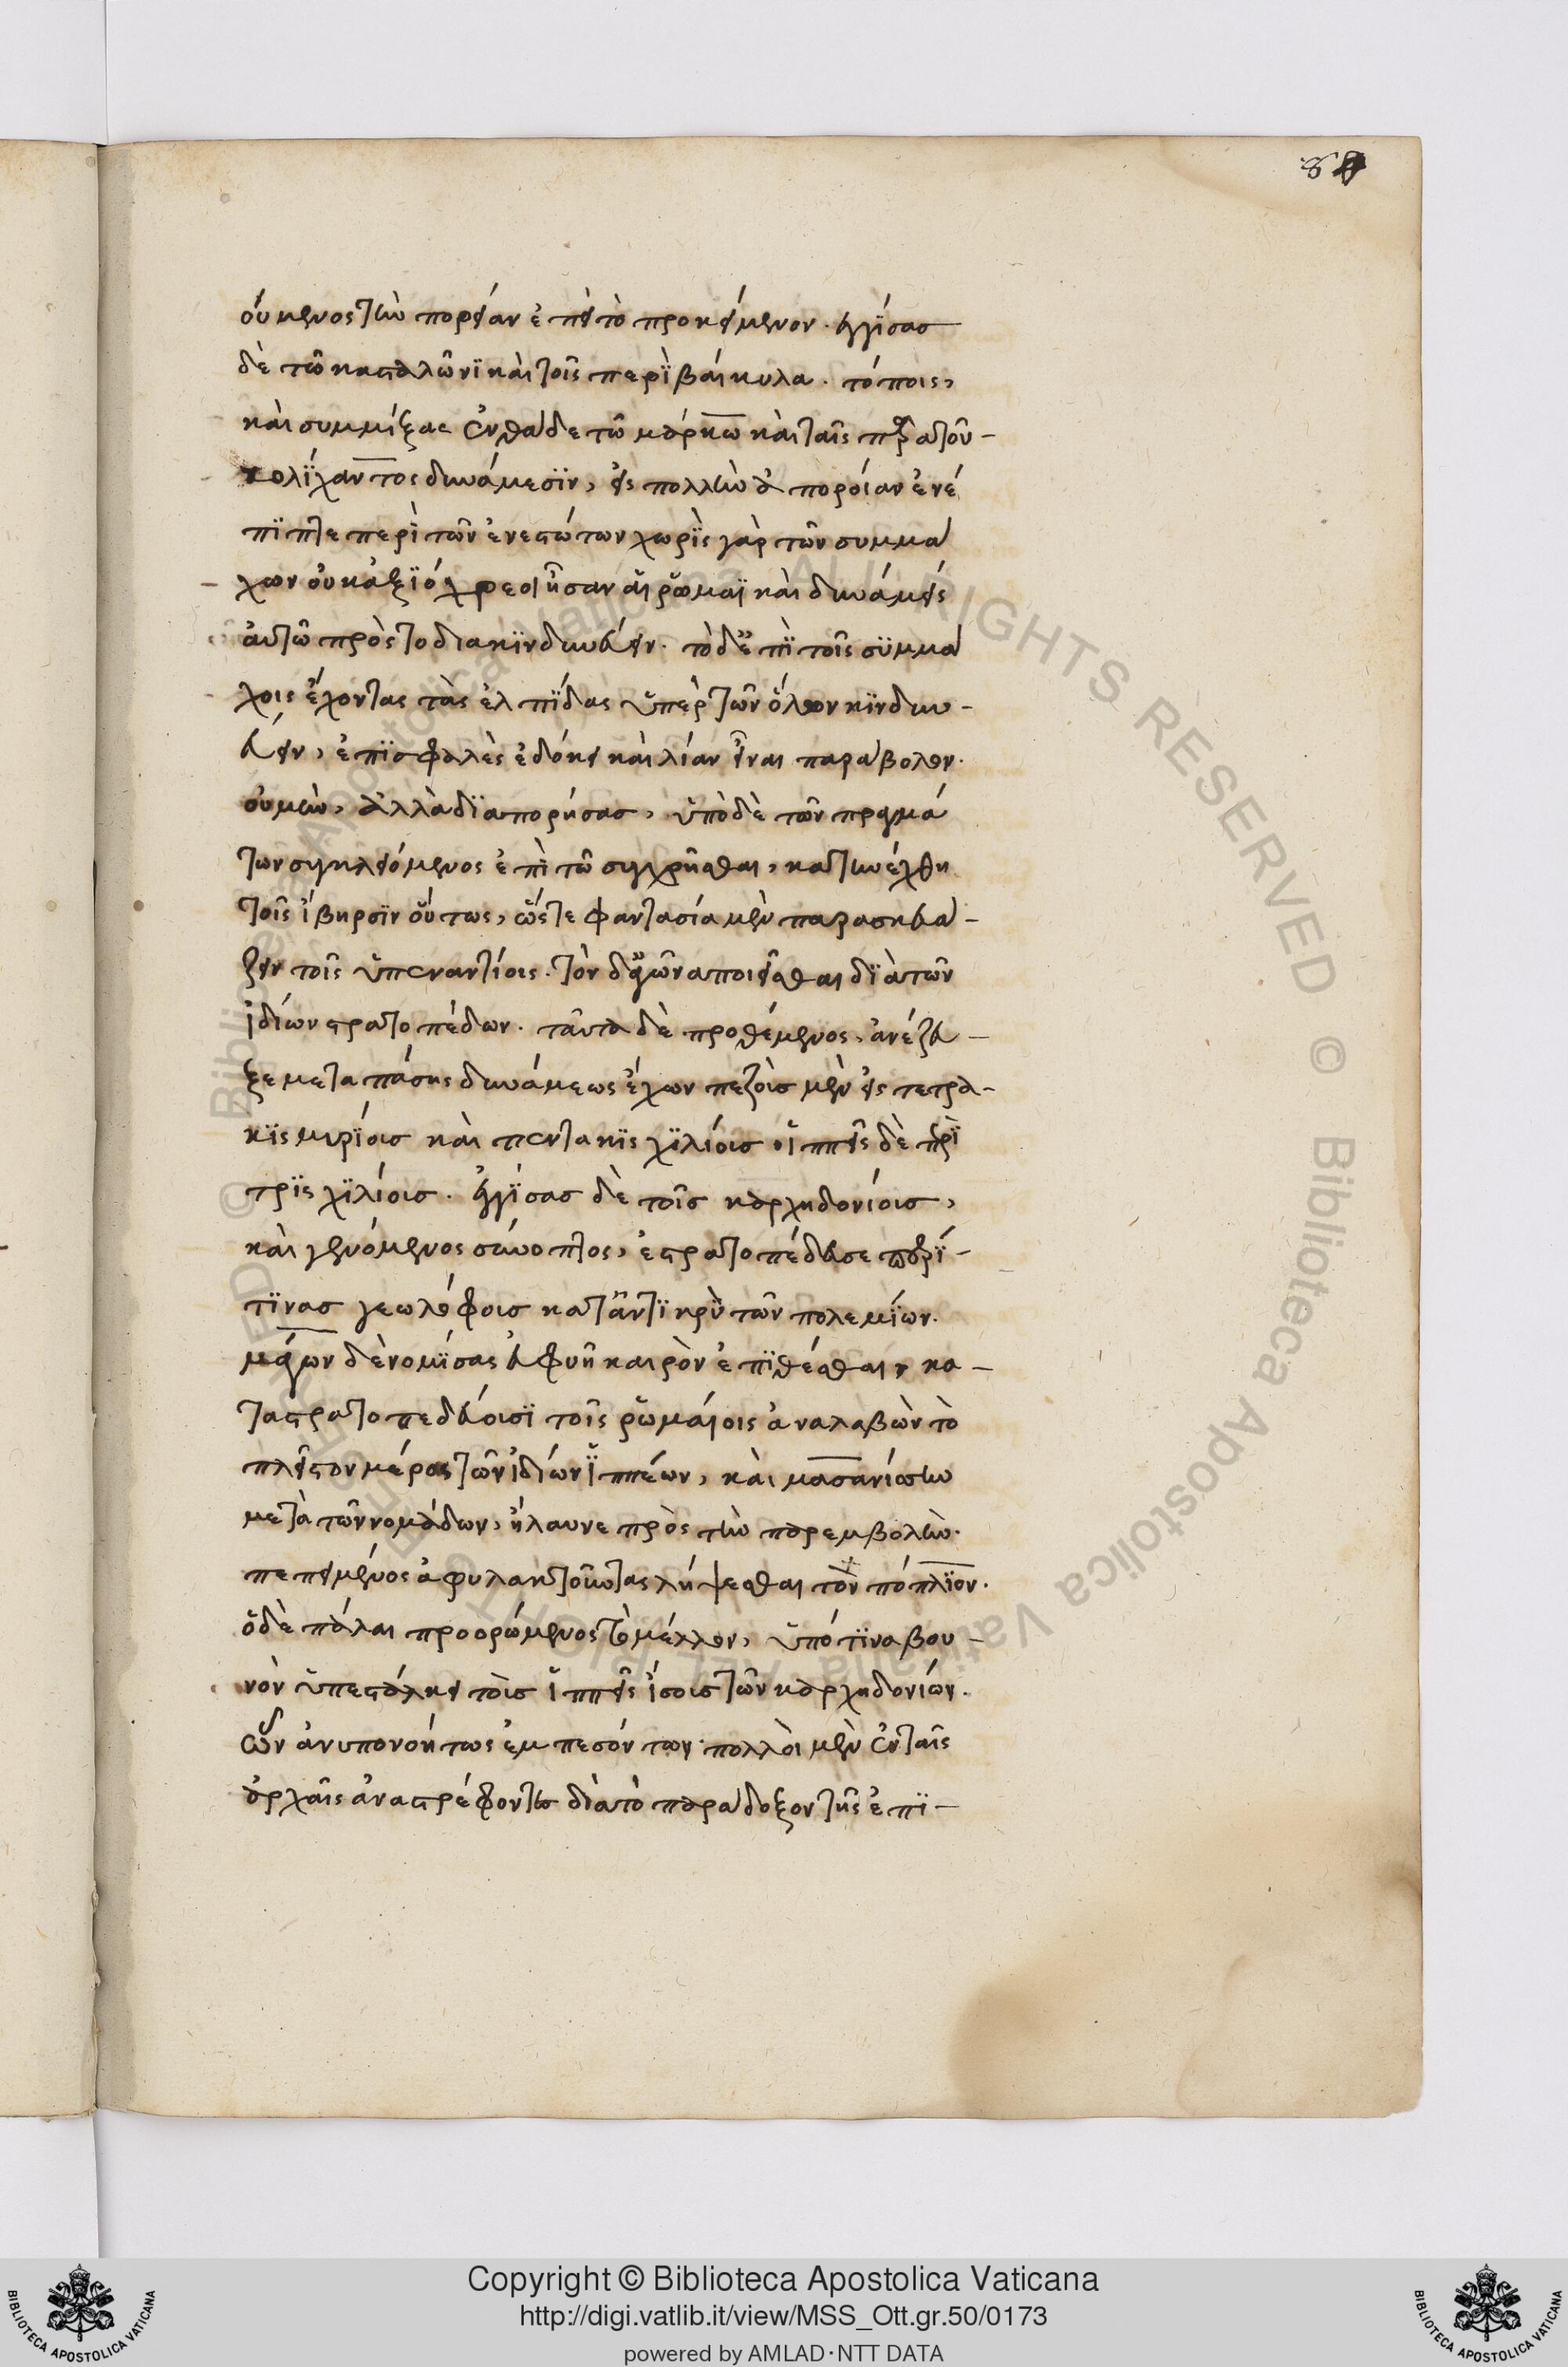 ούμενος τὴν πορείαν ἐπεὶ τὸ προκείμενον. ἐγγίσας
δὲ τῶ κασταλῶνι καὶ τοῖς περὶ βαίκυλα. τόποις,
καὶ συμμίξας ἐνθάδε τῶ μάρκω καὶ ταῖς παρὰ τοῦ-
κολίχαντος δυνάμεσιν, εἰς πολλὴν ἀποροίαν ἐνέ
πιπτε περὶ τῶν ἐνεστώτων χωρὶς γὰρ τῶν συμμά
χων οὐκ ἀξιόχρεοι ἦσαν αἱ ῥωμαϊκαὶ δυνάμεις
αὐτῶ πρὸς το διακινδυνεύειν. τὸ δ' ἐπὶ τοῖς συμμά
χοις ἔχοντας τὰς ἐλπίδας ὑπὲρ τῶν ὅλων κινδυν-
εύειν, ἐπισφαλὲς ἐδόκει καὶ λίαν εἶναι παράβολον.
οὐ μὴν, ἀλλὰ διαπορήσας, ὑπὸ δὲ τῶν πραγμά
των συγκλειόμενος ἐπὶ τῶ συγχρῆσθαι, κατηνέχθη
τοῖς ἴβηρσιν οὕτως, ὥστε φαντασία μὲν παρασκευά-
ζειν τοῖς ὑπεναντίοις. τὸν δ' ἀγῶνα ποιεῖσθαι διὰ τῶν
ἰδίων στρατοπέδων. ταῦτα δὲ προθέμενος, ἀνέζευ-
ξε μετα πάσης δυνάμεως ἔχων πεζοὺς μὲν εἰς τετρα-
κις μυρίους καὶ πεντακις χιλίους ἱππεῖς δὲ περὶ
τρις χιλίους. ἐγγίσας δὲ τοῖς καρχηδονίοις,
καὶ γενόμενος σύνοπτος, ἐστρατοπέδευσε περί-
τινας γεωλόφους καταντικρὺ τῶν πολεμίων.
μάγων δὲ νομίσας εὐφυῆ καιρὸν ἐπιθέσθαι, κα-
ταστρατοπεδεύουσι τοῖς ῥωμαίοις ἀναλαβὼν τὸ
πλεῖστον μέρος τῶν ἰδίων ἱππέων, καὶ μασανίσσην
μετὰ τῶν νομάδων, ἤλαυνε πρὸς τὴν παρεμβολὴν.
πεπεισμένος ἀφυλακτοῦντας λήψεσθαι τὸν πόπλιον.
ὁ δὲ πάλαι προορώμενος τὸ μέλλον, ὑπό τινα βου-
νὸν ὑπεστάλκει τοὺς ἱππεῖς ἴσους τῶν καρχηδονίων.
ὧν ἀνυπονοήτως ἐμπεσόντων. πολλοὶ μὲν ἐν ταῖς
ἀρχαῖς ἀναστρέφοντο διὰ τὸ παράδοξον τῆς ἐπι-
Copyright © Biblioteca Apostolica Vaticana
http://digi.vatlib.it/view/MSS_Ott.gr.50/0173
powered by AMLAD·NTT DATA